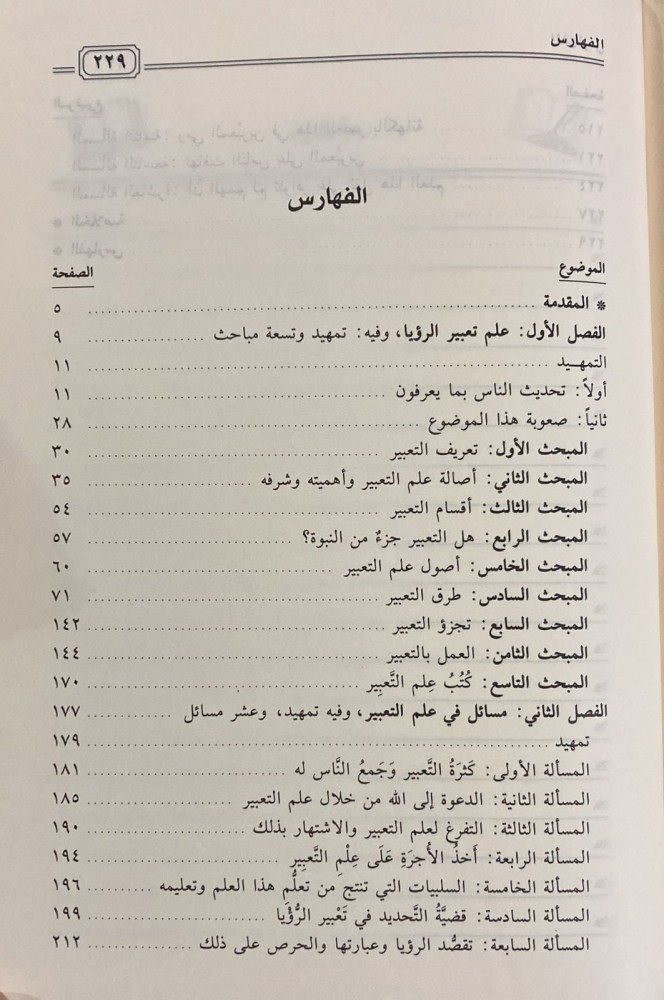 الفهارس
٢٢٩
الفهارس
الموضوع الصفحة
* المقدمة ٥
الفصل الأول: علم تعبير الرؤيا، وفيه: تمهيد وتسعة مباحث ٩
التمهـيد ١١
أولاً: تحديث الناس بما يعرفون ١١
ثانياً: صعوبة هذا الموضوع ٢٨
المبحث الأول: تعريف التعبير ٣٠
المبحث الثاني: أصالة علم التعبير وأهميته وشرفه ٣٥
المبحث الثالث: أقسام التعبير ٥٤
المبحث الرابع: هل التعبير جزءٌ من النبوة؟ ٥٧
المبحث الخامس: أصول علم التعبير ٦٠
المبحث السادس: طرق التعبير ٧١
المبحث السابع: تجزؤ التعبير ١٤٢
المبحث الثامن: العمل بالتعبير ١٤٤
المبحث التاسع: كُتُبُ عِلم التَّعبِير ١٧٠
الفصل الثاني: مسائل في علم التعبير، وفيه تمهيد، وعشر مسائل ١٧٧
تمهيد ١٧٩
المسألة الأولى: كَثرَةُ التَّعبير وَجَمعُ النَّاس له ١٨١
المسألة الثانية: الدعوة إلى الله من خلال علم التعبير ١٨٥
المسألة الثالثة: التفرغ لعلم التعبير والاشتهار بذلك ١٩٠
المسألة الرابعة: أَخذُ الأُجرَةِ عَلَى عِلْمِ التَّعبِير ١٩٤
المسألة الخامسة: السلبيات التي تنتج من تعلُّم هذا العلم وتعليمه ١٩٦
المسألة السادسة: قضيَّةُ التَّحديد في تَعْبير الرُّؤْيَا ١٩٩
المسألة السابعة: تقصُّد الرؤيا وعبارتها والحرص على ذلك ٢١٢